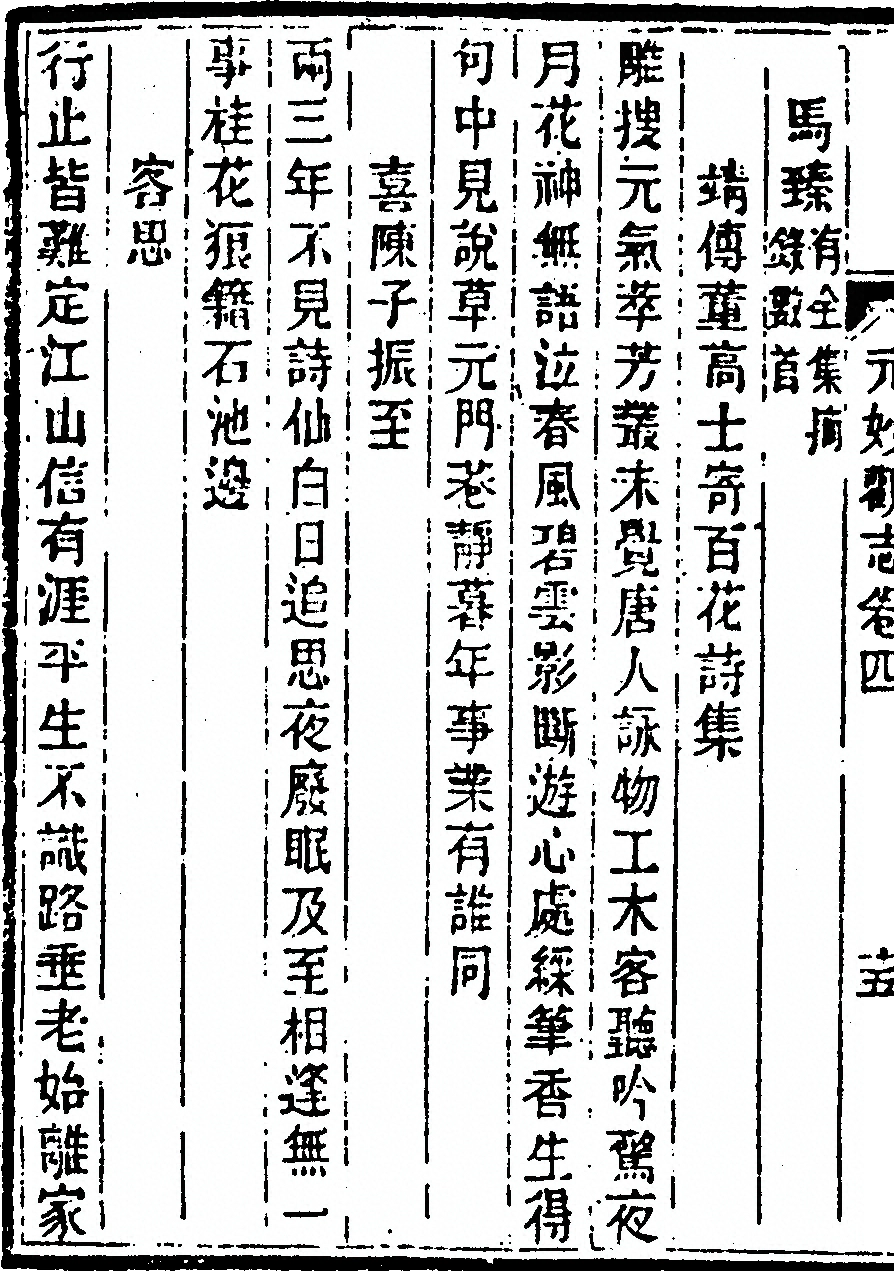 元妙觀志卷四 十五
馬臻有全集摘錄數首
靖傳董高士寄百花詩集
雕搜元氣萃芳叢未覺唐人詠物工木客聽吟驚夜
月花神無語泣春風碧雲影斷遊心處綵筆香生得
句中見說草元門巷靜暮年事業有誰同
喜陳子振至
兩三年不見詩仙白日追思夜廢眠及至相逢無一
事桂花狼籍石池邊
客思
行止皆難定江山信有涯平生不識路垂老始離家